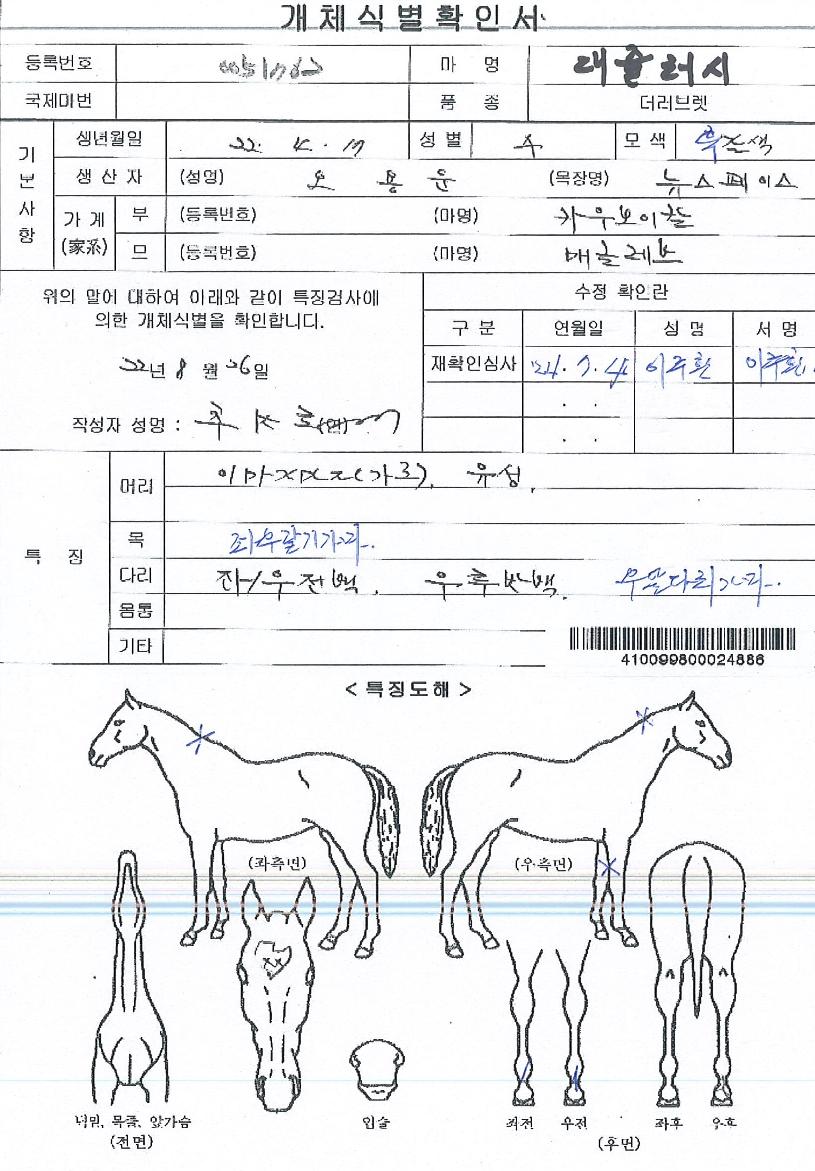 개체식별확인서
등록번호 0051762 마 명 대출러시
국제마번 품 종 더러브렛
기본사항
생년월일 22. 4. 17 성별 수 모색 흑갈색
생산자 (성명) 오 용 운 (목장명) 뉴스페이스
가계 (家系) 부 (등록번호) (마명) 카우보이칼
모 (등록번호) (마명) 매글레브
위의 말에 대하여 아래와 같이 특징검사에
의한 개체식별을 확인합니다.
22년 8 월 26일
작성자 성명 :
수정 확인란
구 분 연월일 성 명 서 명
재확인심사 '24. 7. 4 이주환 이주환
. .
. .
특 징
머리 이마 (가로), 유성,
목 좌우찰기가마.
다리 좌/우전백, 우후반백, 우앞다리가마.
몸통
기타
410099800024886
< 특징도해 >
(좌측면) (우측면)
턱밑, 목줄, 앞가슴
(전면)
입술
좌전 우전 좌후 우후
(후면)